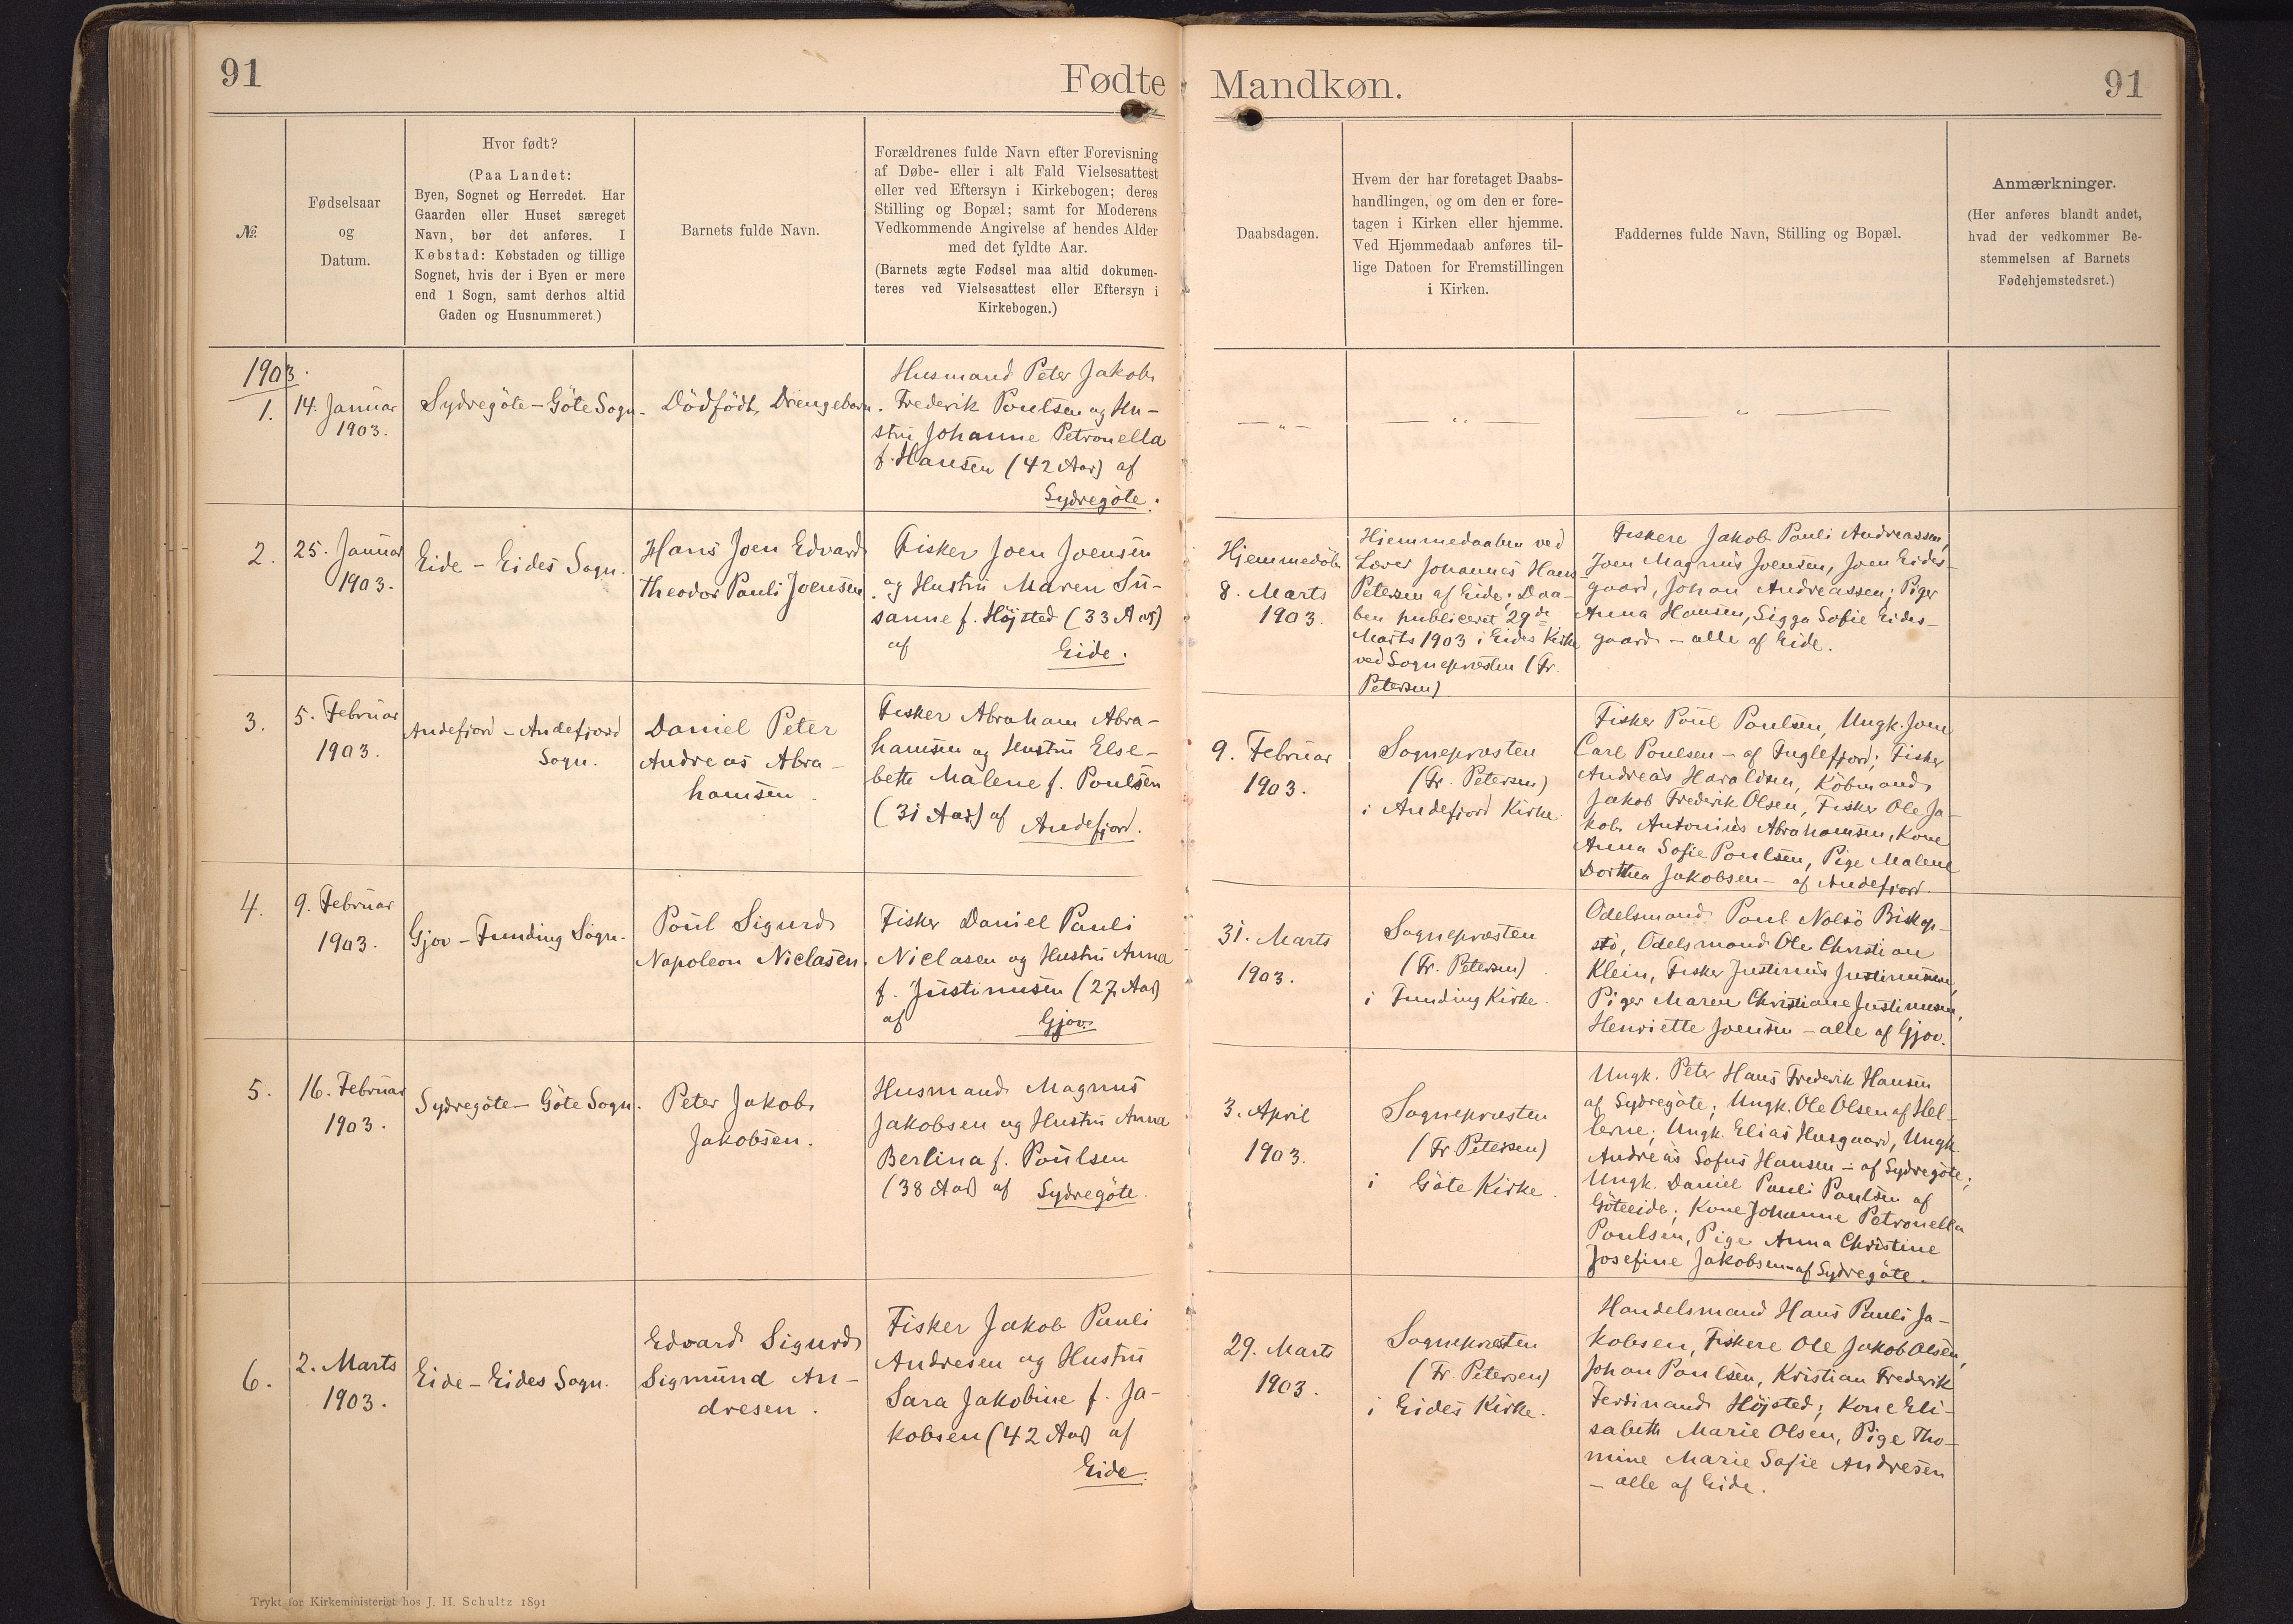 91
Fødte
Mandkøn.
91
№.
Fødselsaar
og
Datum.
Hvor født?
(Paa Landet:
Byen, Sognet og Herredet. Har
Gaarden eller Huset særeget
Navn, bør det anføres. I
Købstad: Købstaden og tillige
Sognet, hvis der i Byen er mere
end 1 Sogn, samt derhos altid
Gaden og Husnummeret.)
Barnets fulde Navn.
Forældrenes fulde Navn efter Forevisning
af Døbe- eller i alt Fald Vielsesattest
eller ved Eftersyn i Kirkebogen; deres
Stilling og Bopæl; samt for Moderens
Vedkommende Angivelse af hendes Alder
med det fyldte Aar.
(Barnets ægte Fødsel maa altid dokumen-
teres ved Vielsesattest eller Eftersyn i
Kirkebogen.)
Daabsdagen.
Hvem der har foretaget Daabs-
handlingen, og om den er fore-
tagen i Kirken eller hjemme.
Ved Hjemmedaab anføres til-
lige Datoen for Fremstillingen
i Kirken.
Faddernes fulde Navn, Stilling og Bopæl.
Anmærkninger.
(Her anføres blandt andet,
hvad der vedkommer Be-
stemmelsen af Barnets
Fødehjemstedsret.)
1903.
1.
14. Januar
1903.
Sydregöte - Göte Sogn.
Dödfödt Drengebarn.
Husmand Peter Jakob
Frederik Poulsen og Hu-
stru Johanne Petronella
f. Hansen (42 Aar) af
Sydregöte.
— " —
— " —
— " —
2.
25. Januar
1903.
Eide - Eides Sogn.
Hans Joen Edvard
Theodor Pauli Joensen
Fisker Joen Joensen
og Hustru Maren Su-
sanne f. Höjsted (33 Aar)
af
Eide.
Hjemmedöb
8. Marts
1903.
Hjemmedaaben ved
Lærer Johannes Hans
Petersen af Eide; Daa-
ben publiceret 29de
Marts 1903 i Eides Kirke
ved Sognepræsten (Fr.
Petersen)
Fiskere Jakob Pauli Andreassen,
Joen Magnus Joensen, Joen Eides-
gaard, Johan Andreassen; Piger
Anna Hansen, Sigga Sofie Eides-
gaard - alle af Eide.
3.
5. Februar
1903.
Andefjord - Andefjord
Sogn.
Daniel Peter
Andreas Abra-
hamsen.
Fisker Abraham Abra-
hamsen og Hustru Else-
beth Malene f. Poulsen
(31 Aar) af
Andefjord.
9. Februar
1903.
Sognepræsten
(Fr. Petersen)
i Andefjord Kirke.
Fisker Poul Poulsen, Ungk. Joen
Carl Poulsen - af Fuglefjord; Fisker
Andreas Haraldsen, Köbmand
Jakob Frederik Olsen, Fisker Ole Ja-
kob Antonius Abrahamsen, Kone
Anna Sofie Poulsen, Pige Malene
Dorthea Jakobsen - af Andefjord.
4.
9. Februar
1903.
Gjov - Funding Sogn.
Poul Sigurd
Napoleon Niclasen.
Fisker Daniel Pauli
Niclasen og Hustru Anna
f. Justinusen (27 Aar)
af
Gjov.
31. Marts
1903.
Sognepræsten
(Fr. Petersen)
i Funding Kirke.
Odelsmand Poul Nolsö Biskop-
stö, Odelsmand Ole Christian
Klein, Fisker Justinus Justinusen,
Piger Maren Christiane Justinusen,
Henriette Joensen - alle af Gjov.
5.
16. Februar
1903.
Sydregöte - Göte Sogn.
Peter Jakob
Jakobsen.
Husmand Magnus
Jakobsen og Hustru Anna
Berlina f. Poulsen
(38 Aar) af Sydregöte.
3. April
1903.
Sognepræsten
(Fr. Petersen)
i Göte Kirke.
Ungk. Peter Hans Frederik Hansen
af Sydregöte; Ungk. Ole Olsen af Hel-
lerne; Ungk. Elias Husgaard, Ungk.
Andreas Sofus Hansen - af Sydregöte;
Ungk. Daniel Pauli Poulsen af
Göteeide; Kone Johanne Petronella
Poulsen, Pige Anna Christine
Josefine Jakobsen - af Sydregöte.
6.
2. Marts
1903.
Eide - Eides Sogn.
Edvard Sigurd
Sigmund An-
dresen.
Fisker Jakob Pauli
Andresen og Hustru
Sara Jakobine f. Ja-
kobsen (42 Aar) af
Eide.
29. Marts
1903.
Sognepræsten
(Fr. Petersen)
i Eides Kirke.
Handelsmand Hans Pauli Ja-
kobsen, Fiskere Ole Jakob Olsen,
Johan Poulsen, Kristian Frederik
Ferdinand Höjsted; Kone Eli-
sabeth Marie Olsen, Pige Tho-
mine Marie Sofie Andresen
- alle af Eide.
Trykt for Kirkeministeriet hos J. H. Schultz 1891